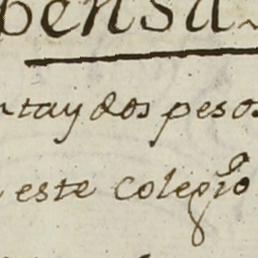 pensa
ntay dos pesos
este colegio